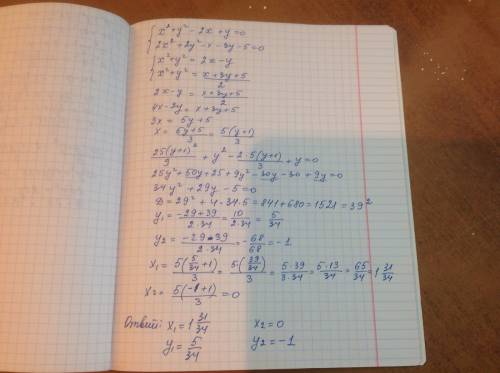 { x² + y² - 2x + y = 0
2x² + 2y² - x - 3y - 5 = 0
{ x² + y² = 2x - y
x² + y² = (x + 3y + 5)/2
2x - y = (x + 3y + 5)/2
4x - 2y = x + 3y + 5
3x = 5y + 5
x = (5y + 5)/3 = 5(y + 1)/3
25(y + 1)²/9 + y² - 2·5(y + 1)/3 + y = 0
25y² + 50y + 25 + 9y² - 30y - 30 + 9y = 0
34y² + 29y - 5 = 0
D = 29² + 4·34·5 = 841 + 680 = 1521 = 39²
y₁ = (-29 + 39)/(2·34) = 10/(2·34) = 5/34
y₂ = (-29 - 39)/(2·34) = -68/68 = -1
x₁ = 5(5/34 + 1)/3 = 5(39/34)/3 = 5·39/(3·34) = 5·13/34 = 65/34 = 1 31/34
x₂ = 5(-1 + 1)/3 = 0
Ответ: x₁ = 1 31/34 x₂ = 0
y₁ = 5/34 y₂ = -1